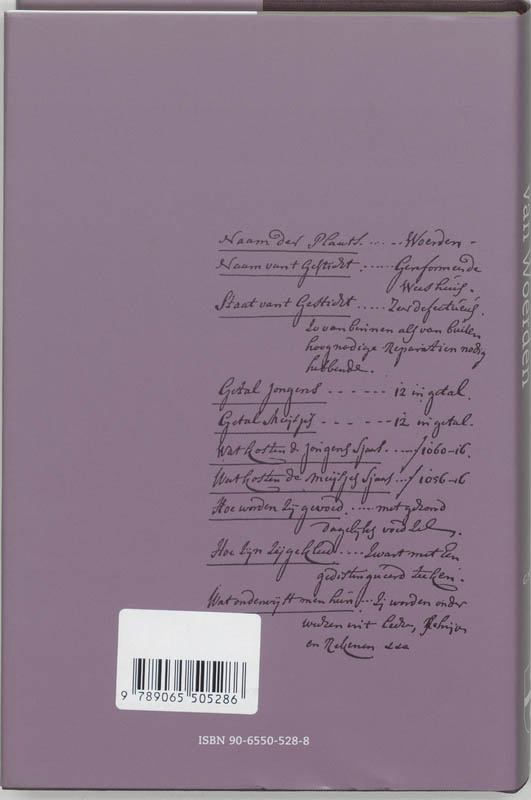 Naam der Plaats ...... Woerden -
Naam vant Gesticht ...... Gereformeerde
Weeshuis.
Staat vant Gesticht ..... Zeer defectueus.
Zo van binnen als van buiten
hoognodige Reparatien nodig
hebbende.
Getal Jongens - - - - - 12 in getal.
Getal Meijsjes - - - - - - 12 in getal.
Wat kosten de jongens sjaers ..... ƒ1060-16.
Wat kosten de meijsjes sjaers ... ƒ1056-16
Hoe worden zij gevoed ..... met gezond
dagelijks voedsel.
Hoe zijn zij gekleed .... Zwart met een
gedistingueerd teeken.
Wat onderwijst men hun .. Zij worden onder
wezen int Leezen, Schrijven
en Rekenen &&a
9 789065 505286
ISBN 90-6550-528-8
van Woerden